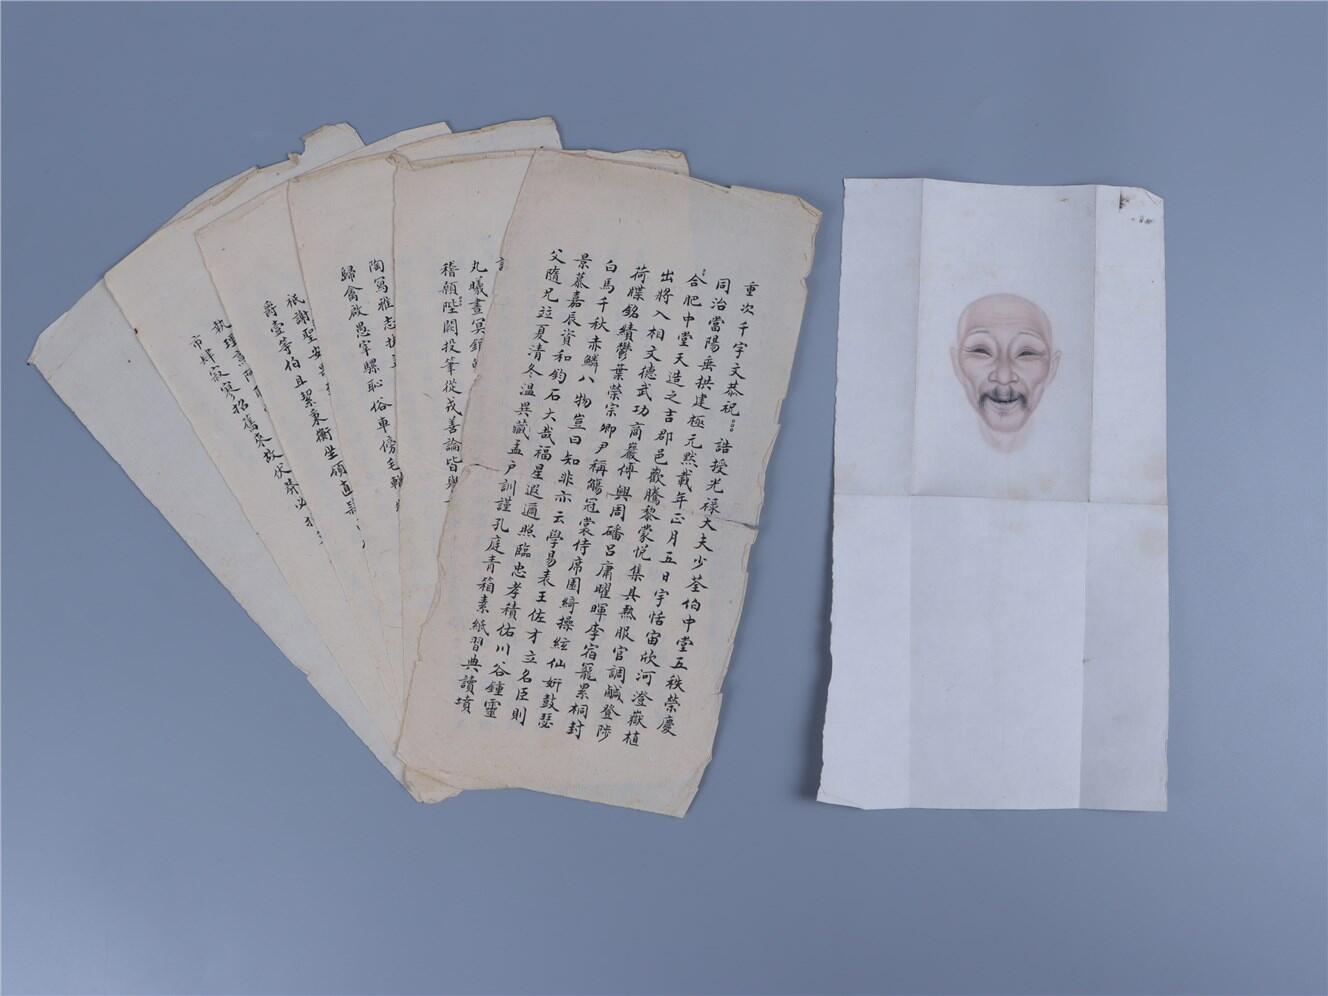 重次千字文恭祝
誥授光祿大夫少荃伯中堂五秩榮慶
同治當陽垂拱建極元默載年正月五日宇恬宙欣河澄嶽植
合肥中堂天造之吉郡邑歡騰黎蒙悅集具熱服官調鹹登陟
出將入相文德武功商巖傅興周磻呂庸曜暉李宿寵累桐封
荷牒銘績鬱葉榮宗卿尹稱觴冠裳侍席園綺操絃仙妍鼓瑟
白馬千秋赤鱗八物豈曰知非亦云學易表王佐才立名臣則
景慕嘉辰資和鈞石大哉福星遐邇照臨忠孝積佑川谷鍾靈
父隨兄竝夏清冬溫異藏孟戶訓謹孔庭青箱素紙習典讀墳
言
丸曦晝冥銀
稽顙陛闕投筆從戎善論皆與
陶寫雅志
歸禽啟愚宰騾恥俗車傍毛
祇謝聖安
爵壹等伯且絜秉衡坐領直
市肆寂寥招舊來故伏